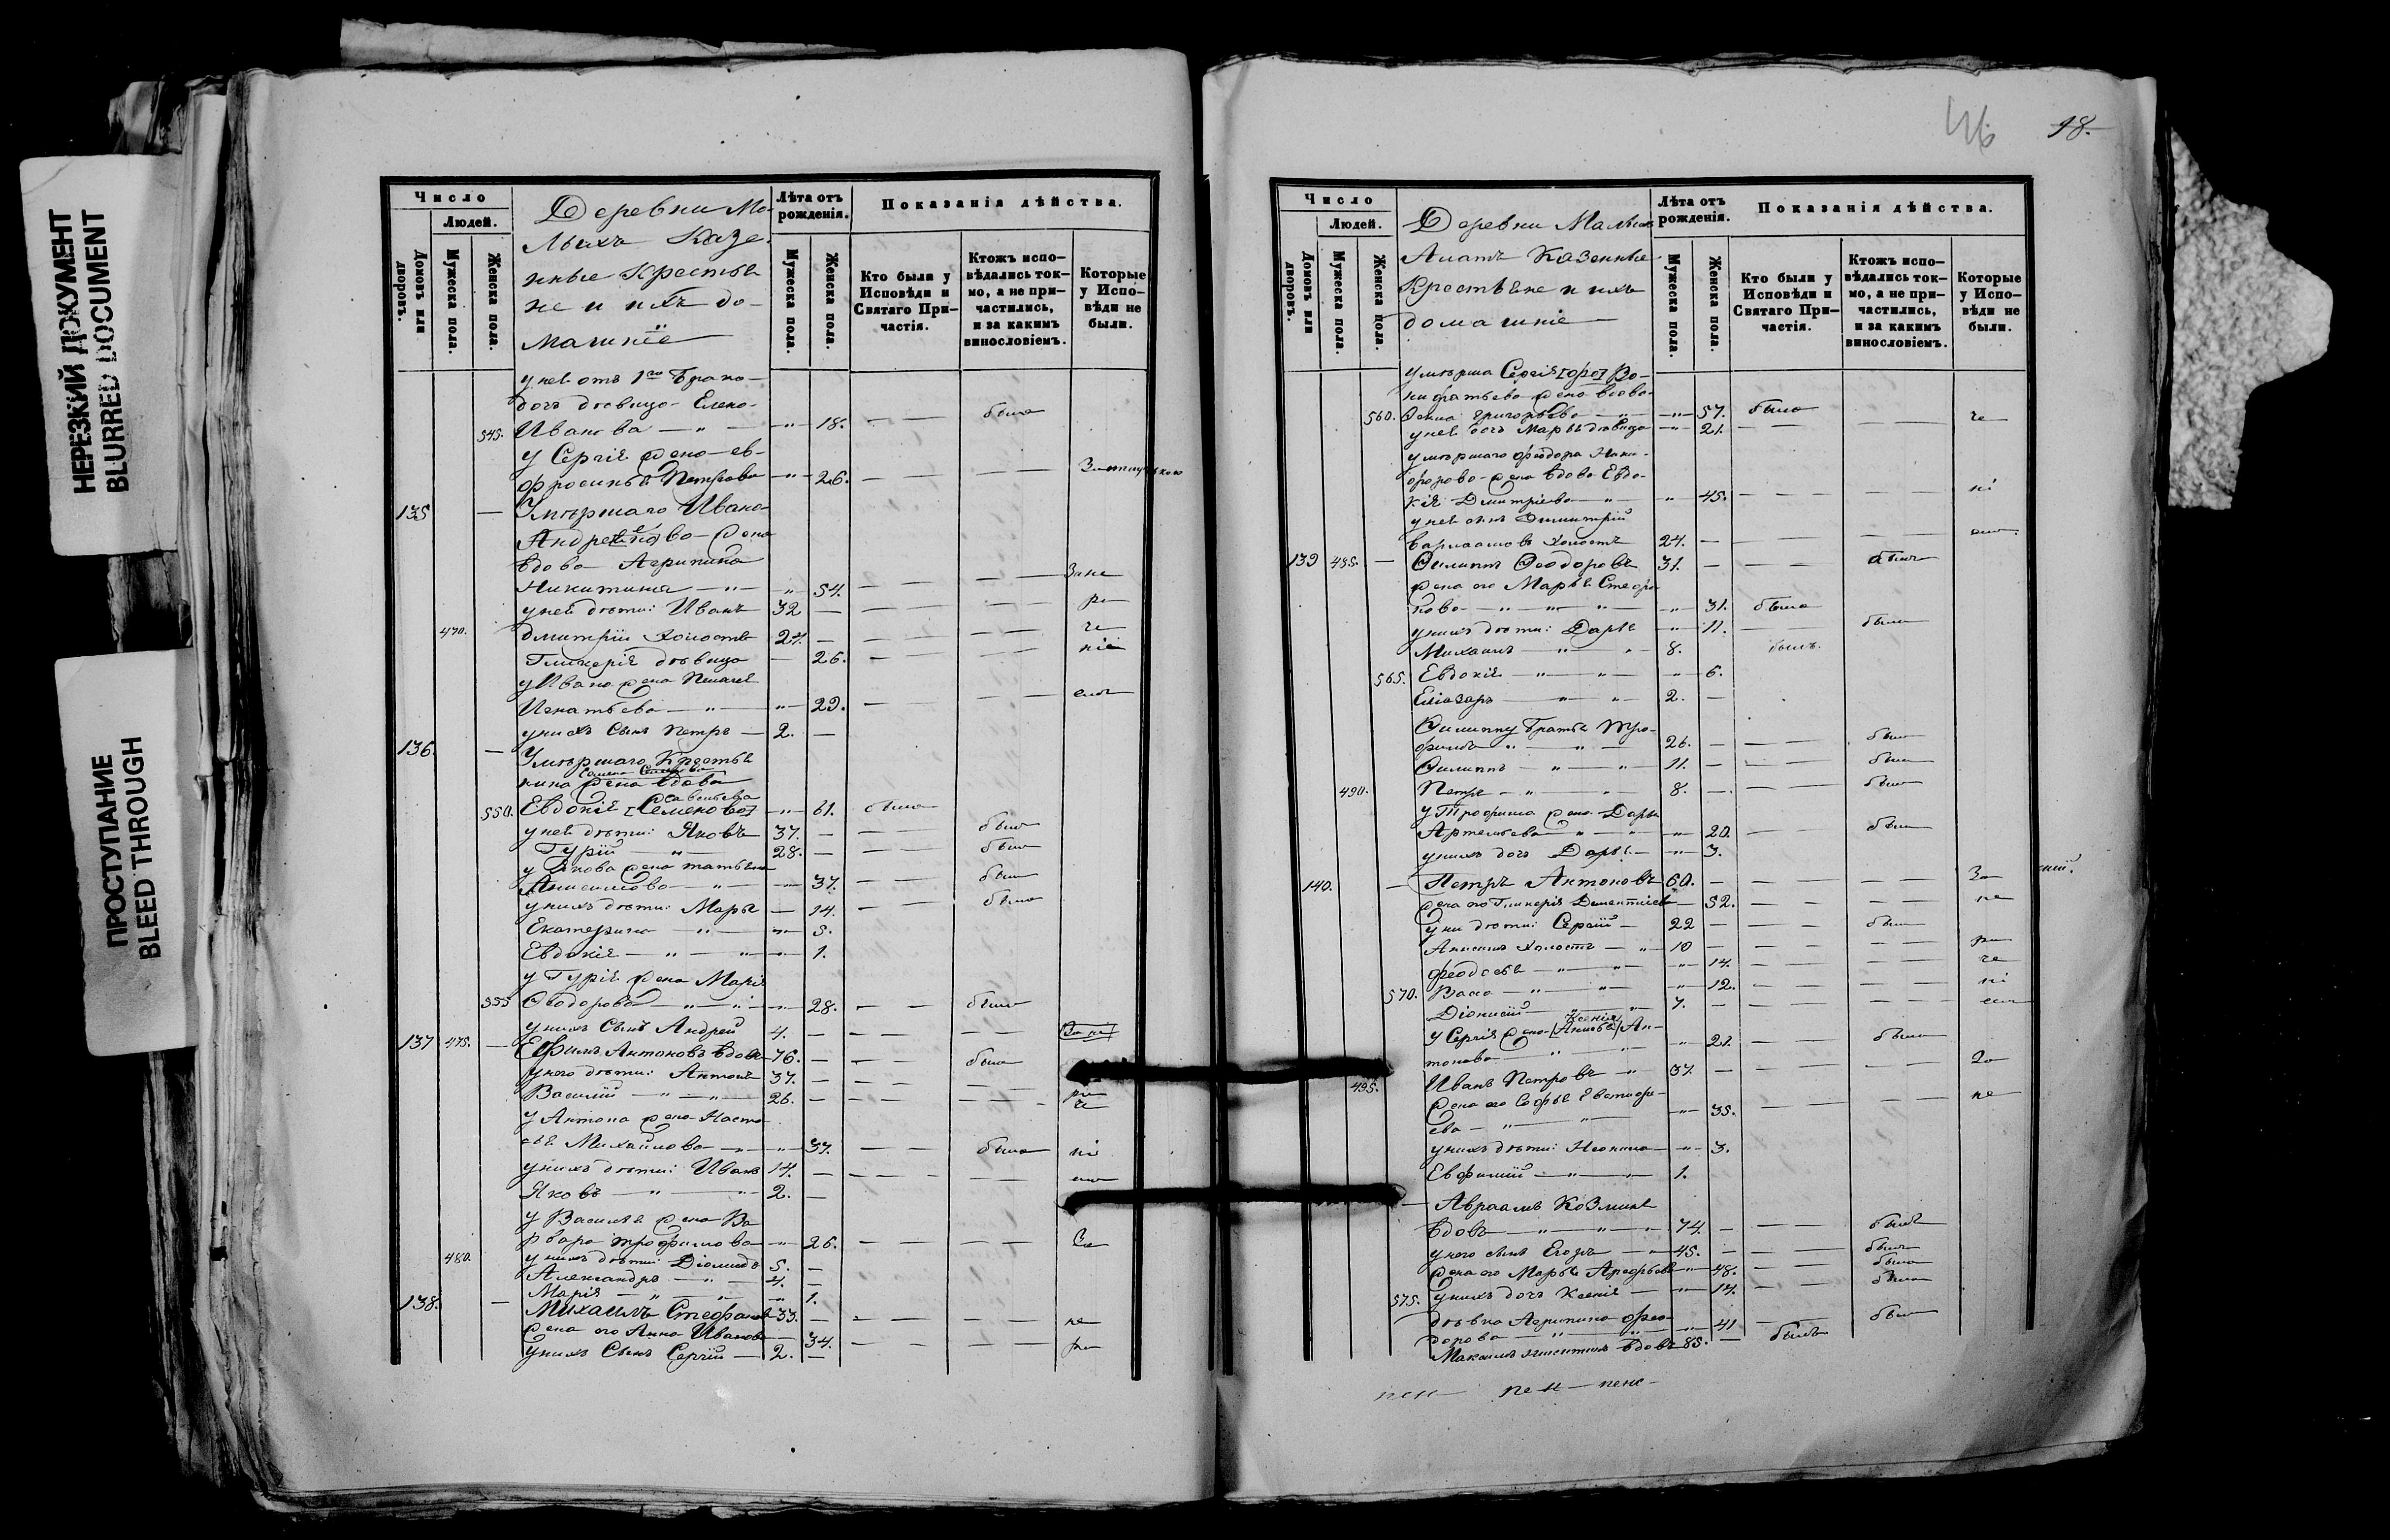 НЕРЕЗКИЙ ДОКУМЕНТ
BLURRED DOCUMENT
ПРОСТУПАНИЕ
BLEED THROUGH
Число
Людей.
Домовъ или дворовъ.
Мужеска пола.
Женска пола.
Деревни Ма-
лыхъ Казе-
нные Крестья
не и ихъ до-
машніе
Лѣта отъ рожденія.
Мужеска пола.
Женска пола.
Показанія дѣйства.
Кто были у Исповѣди и Святаго Причастія.
Ктожъ испо-
вѣдались ток-
мо, а не при-
частились,
и за какимъ
винословіемъ.
Которые
у Испо-
вѣди не
были.
у неё отъ 1го Брака
дочь дѣвица Елена
545. Иванова — " — 18. была
у Сергія жена Ев-
фросинья Петрова — " — 26.
135 — Умершаго Ивана
Андреева жена
вдова Агрипина
Никитина — " — 54. За не
у ней дѣти: Иванъ 32 — ра
470. Дмитрій холостъ 24. — че
Гликерія дѣвица — 26. ніе
у Ивана жена
Игнатьева — " — 29.
у нихъ сынъ Петръ — 2. —
136. — Умершаго Крестья
нина жена вдова
Савельева
550. Евдокія [Семенова] — " — 61. была
у ней дѣти: Яковъ 37. — былъ
Гурій — " — 28. — былъ
у Якова жена Татьяна
Анисимова — " — 37. была
у нихъ дѣти: Марья — 14. была
Екатерина — " — 5.
Евдокія — " — " — 1.
у Гурія жена Марія
555 Ѳеодорова — " — 28. — была
у нихъ сынъ Андрей 4. —
137 475. — Ефимъ Антоновъ вдовъ 76. — былъ
у него дѣти: Антонъ 37. —
Василій — " — " — 26. — ра че
у Антона жена Наста-
сья Михайлова — " — 37. была ні
у нихъ дѣти: Иванъ 14. —
Яковъ — " — " — 2. —
у Василья жена Ва
рвара Трофимова — " — 26. За
480. у нихъ дѣти: Діомидъ 5. —
Александръ — " — 4. —
Марія — " — " — 1.
138. — Михаилъ Стефановъ 33. — не
жена его Анна Иванова — 34. ра
у нихъ сынъ Сергій — 2. —
18.
Число
Людей.
Домовъ или дворовъ.
Мужеска пола.
Женска пола.
Деревни Малыхъ
Казенные
Крестьяне и ихъ
домашніе
Лѣта отъ рожденія.
Мужеска пола.
Женска пола.
Показанія дѣйства.
Кто были у
Исповѣди и
Святаго При-
частія.
Ктожъ испо-
вѣдались ток-
мо, а не при-
частились,
и за какимъ
винословіемъ.
Которые
у Испо-
вѣди не
были.
жена вдова
560. Григорьева — " — 57. была
у неё дочь Марья дѣвица — " — 21. че
умершаго Феодора Ники-
форова жена вдова Евдо-
кія Дмитріева — " — 45. ні
у неё сынъ Димитрій
холостъ 24. —
139 485. — Филиппъ Ѳеодоровъ 31. — былъ
жена его Марья Стефа-
нова — " — " — 31. была
у нихъ дѣти: Дарья — " — 11. была
Михаилъ — " — 8. былъ.
565. Евдокія — " — " — 6.
Еліазаръ — " — 2. —
Филиппу братья Тро-
фимъ " — " — 26. — былъ
Филиппъ — " — " 11. — былъ
490. Петръ — " — 8. — былъ
у Трофима жена Дарья
Артемьева — " — 20. была
у нихъ дочь Дарья — " — 3.
140. — Петръ Антоновъ 60. — За
жена его Гликерія Дементіева — 52. не
у ни дѣти: Сергій — 22 — былъ
Анисимъ холостъ — " — 10 — ра
Феодосья — " — " — 14. че
570. Васса — " — " — 12. ні
Діонисій — " — 7. —
Ксенія
у Сергія жена [Анисья] Ан-
тонова — " — 21. была
495. Иванъ Петровъ — " 37. — За
жена его Софья Евстафе-
ева — " — 35. не
у нихъ дѣти: Неонила — " — 3.
Евфимій — " — 1.
— Авраамъ Козминъ
вдовъ — " — " — 74. — былъ
у него сынъ Егоръ — " 45. — былъ
жена его Марья Арефьева — " — 48. была
575. у нихъ дочь Ксенія — " — 14. была
дѣвка Агрипина Фео-
дорова — " — " — 41 была
Максимъ вдовъ 85. — былъ